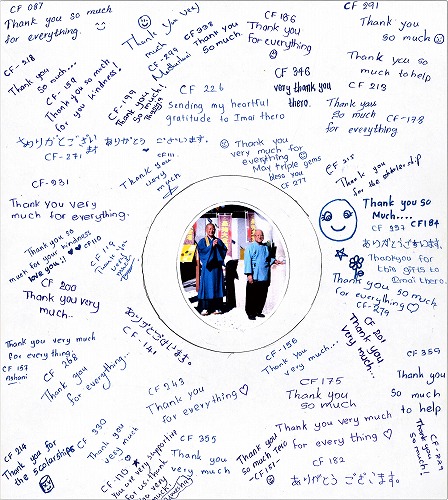 CF 087
Thank you so much
for everything.
Thank you very
much
CF-299
Methuhani
CF 338
Thank you
so much.
CF 186
Thank you
for everything
CF 291
Thank you
so much
CF-218
Thank you
so much...
CF-159
Thank you so much
for you kindness!
CF-199
Thank you
so much!
CF 226
Sending my heartful
gratitude to Imai thero.
CF 346
very thank you
thero.
Thank you so
much to help
CF 213
Thank you
so much
for everything
CF-178
ありがとうござい
ます
CF-271
ありがとう ございます。
CF 111
Thank you
very much
Thank you
very much for
everything
May triple gems
bless you
CF 277
CF 215
Thank you
for the scholarship
CF-231
Thank you very
much for everything.
Thank you so
Much....
CF 227
CF184
ありがとうございます。
Thankyou for
this gifts to
Imai thero.
Thank you so
much for your kindness
love you..!
CF110
CF 119
Thank you
very
much
CF 200
Thank you very
much..
Thank you so much
for everything
CF-279
CF 201
Thank you
very much...
ありがとうございます。
CF-141
Thank you very much
for everything.
CF 157
Ashani
CF 268
Thank you
for everything..
CF-156
Thank you
very much...
CF 359
Thank you
so much
to help
CF 243
Thank you
for everything
CF 175
Thank you
so much
CF 214
Thank you for
the scholarships
CF 330
Thank you
very much
CF-110
You are very supportive
for us. Thank
you very
much
CF 355
Thank you
very much
Thank you
so much
-CF151-
Thank you very much
for every thing
CF 182
ありがとう ございます。
Thank you
so much!